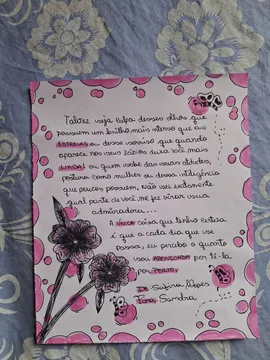 Talvez seja culpa desses olhos que
possuem um brilho mais intenso que as
ESTRELAS ou desse sorriso que quando
aparece nos seus lábios deixa você mais
LINDA! ou quem sabe das suas atitudes,
postura como mulher ou dessa inteligência
que poucos possuem, não sei exatamente
qual parte de você me fez virar uma
admiradora...
A ÚNICA coisa que tenho certeza
é que a cada dia que se
passa, eu percebo o quanto
sou ABENÇOADA por tê-la
por PERTO.
De Safira Lopes
Para Sandra